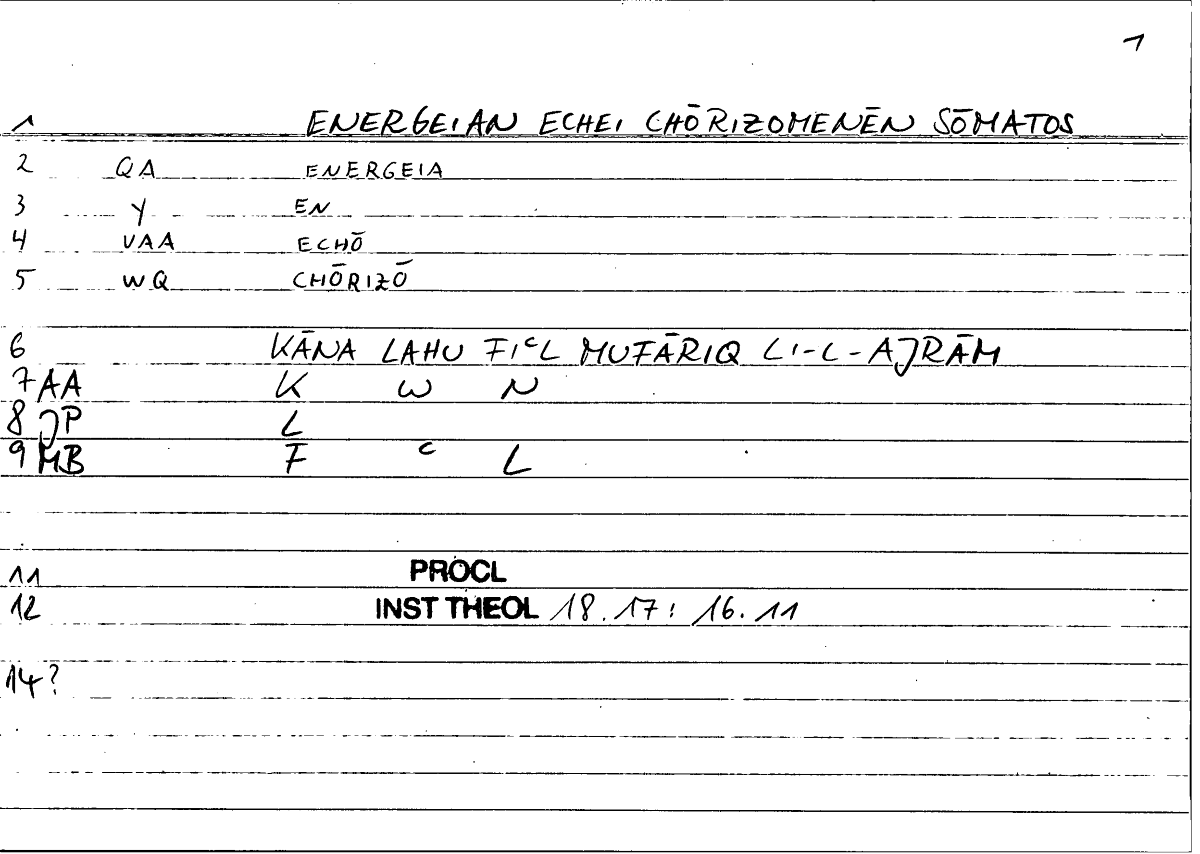 1
1 ENERGEIAN ECHEI CHŌRIZOMENĒN SŌMATOS
2 QA ENERGEIA
3 Y EN
4 VAA ECHŌ
5 WQ CHŌRIZŌ
6 KĀNA LAHU FIᶜL MUFĀRIQ LI-L-AJRĀM
7 AA K W N
8 JP L
9 MB F ᶜ L
11 PROCL
12 INST THEOL 18.17: 16.11
14?